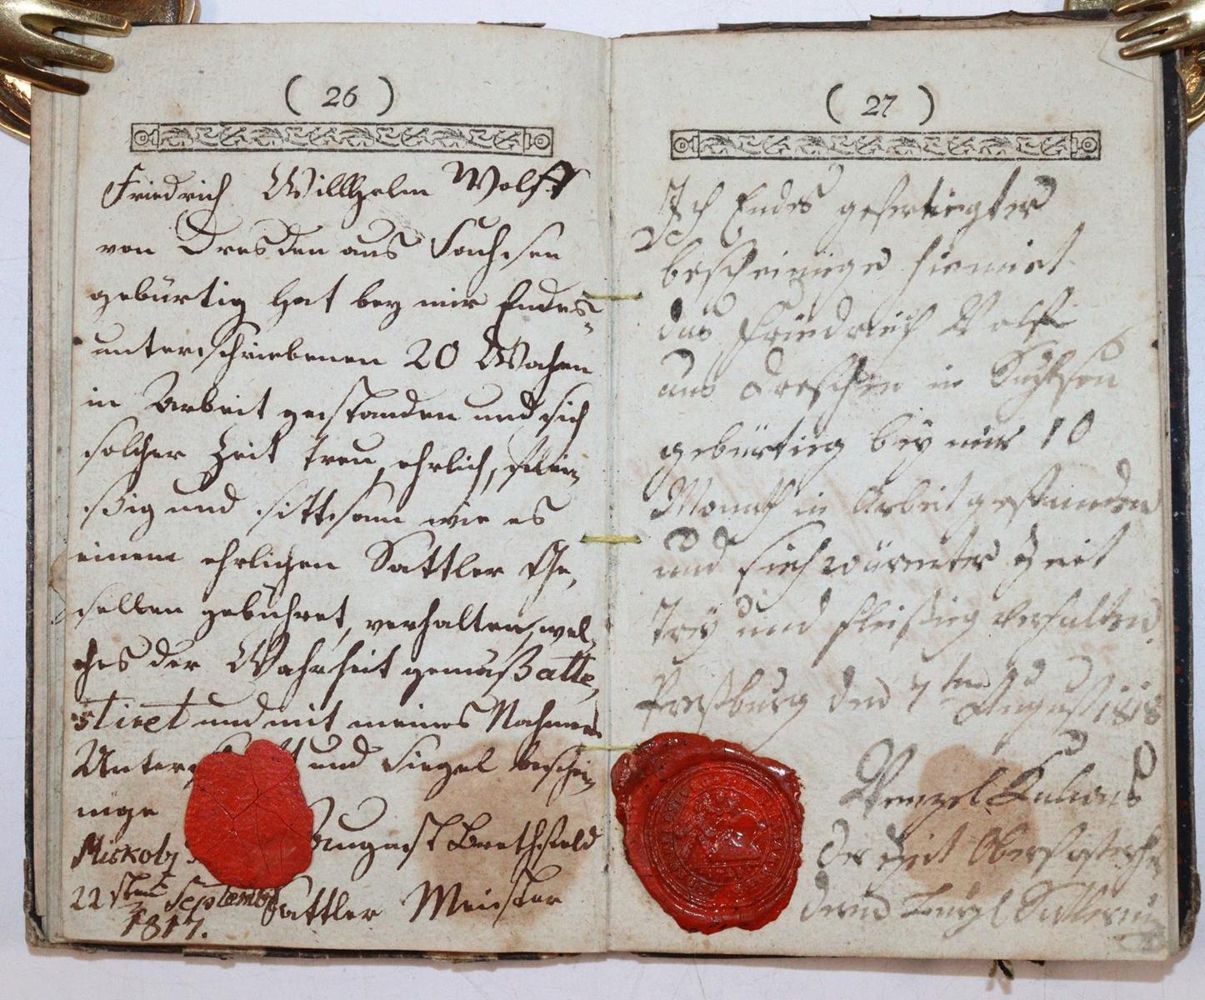 ( 26 )
Friedrich Willhelm Wolff
von Dresden aus Sachsen
gebürtig hat bey mir Endes-
unterschriebenen 20 Wochen
in Arbeit gestanden und sich
solcher Zeit treu, ehrlich, fleis
ßig und sittsam wie es
einem ehrlichen Sattler Ge,
sellen gebühret, verhalten, wel,
ches der Wahrheit gemäß atte,
stiret und mit meines Nahmens
und Siegel beschei,
nige
Miskolz August
22 September Sattler Meister
1817.
( 27 )
Ich Endes gefertiegter
bescheiniege hiemit
das Friedrich Wolff
aus in
gebürtieg bey mir 10
Monath in Arbeit gestanden
und sich Zeit
Trey und fleißieg verhalten.
Preßburg den 7ten August 1818
Wenzel
der Zeit